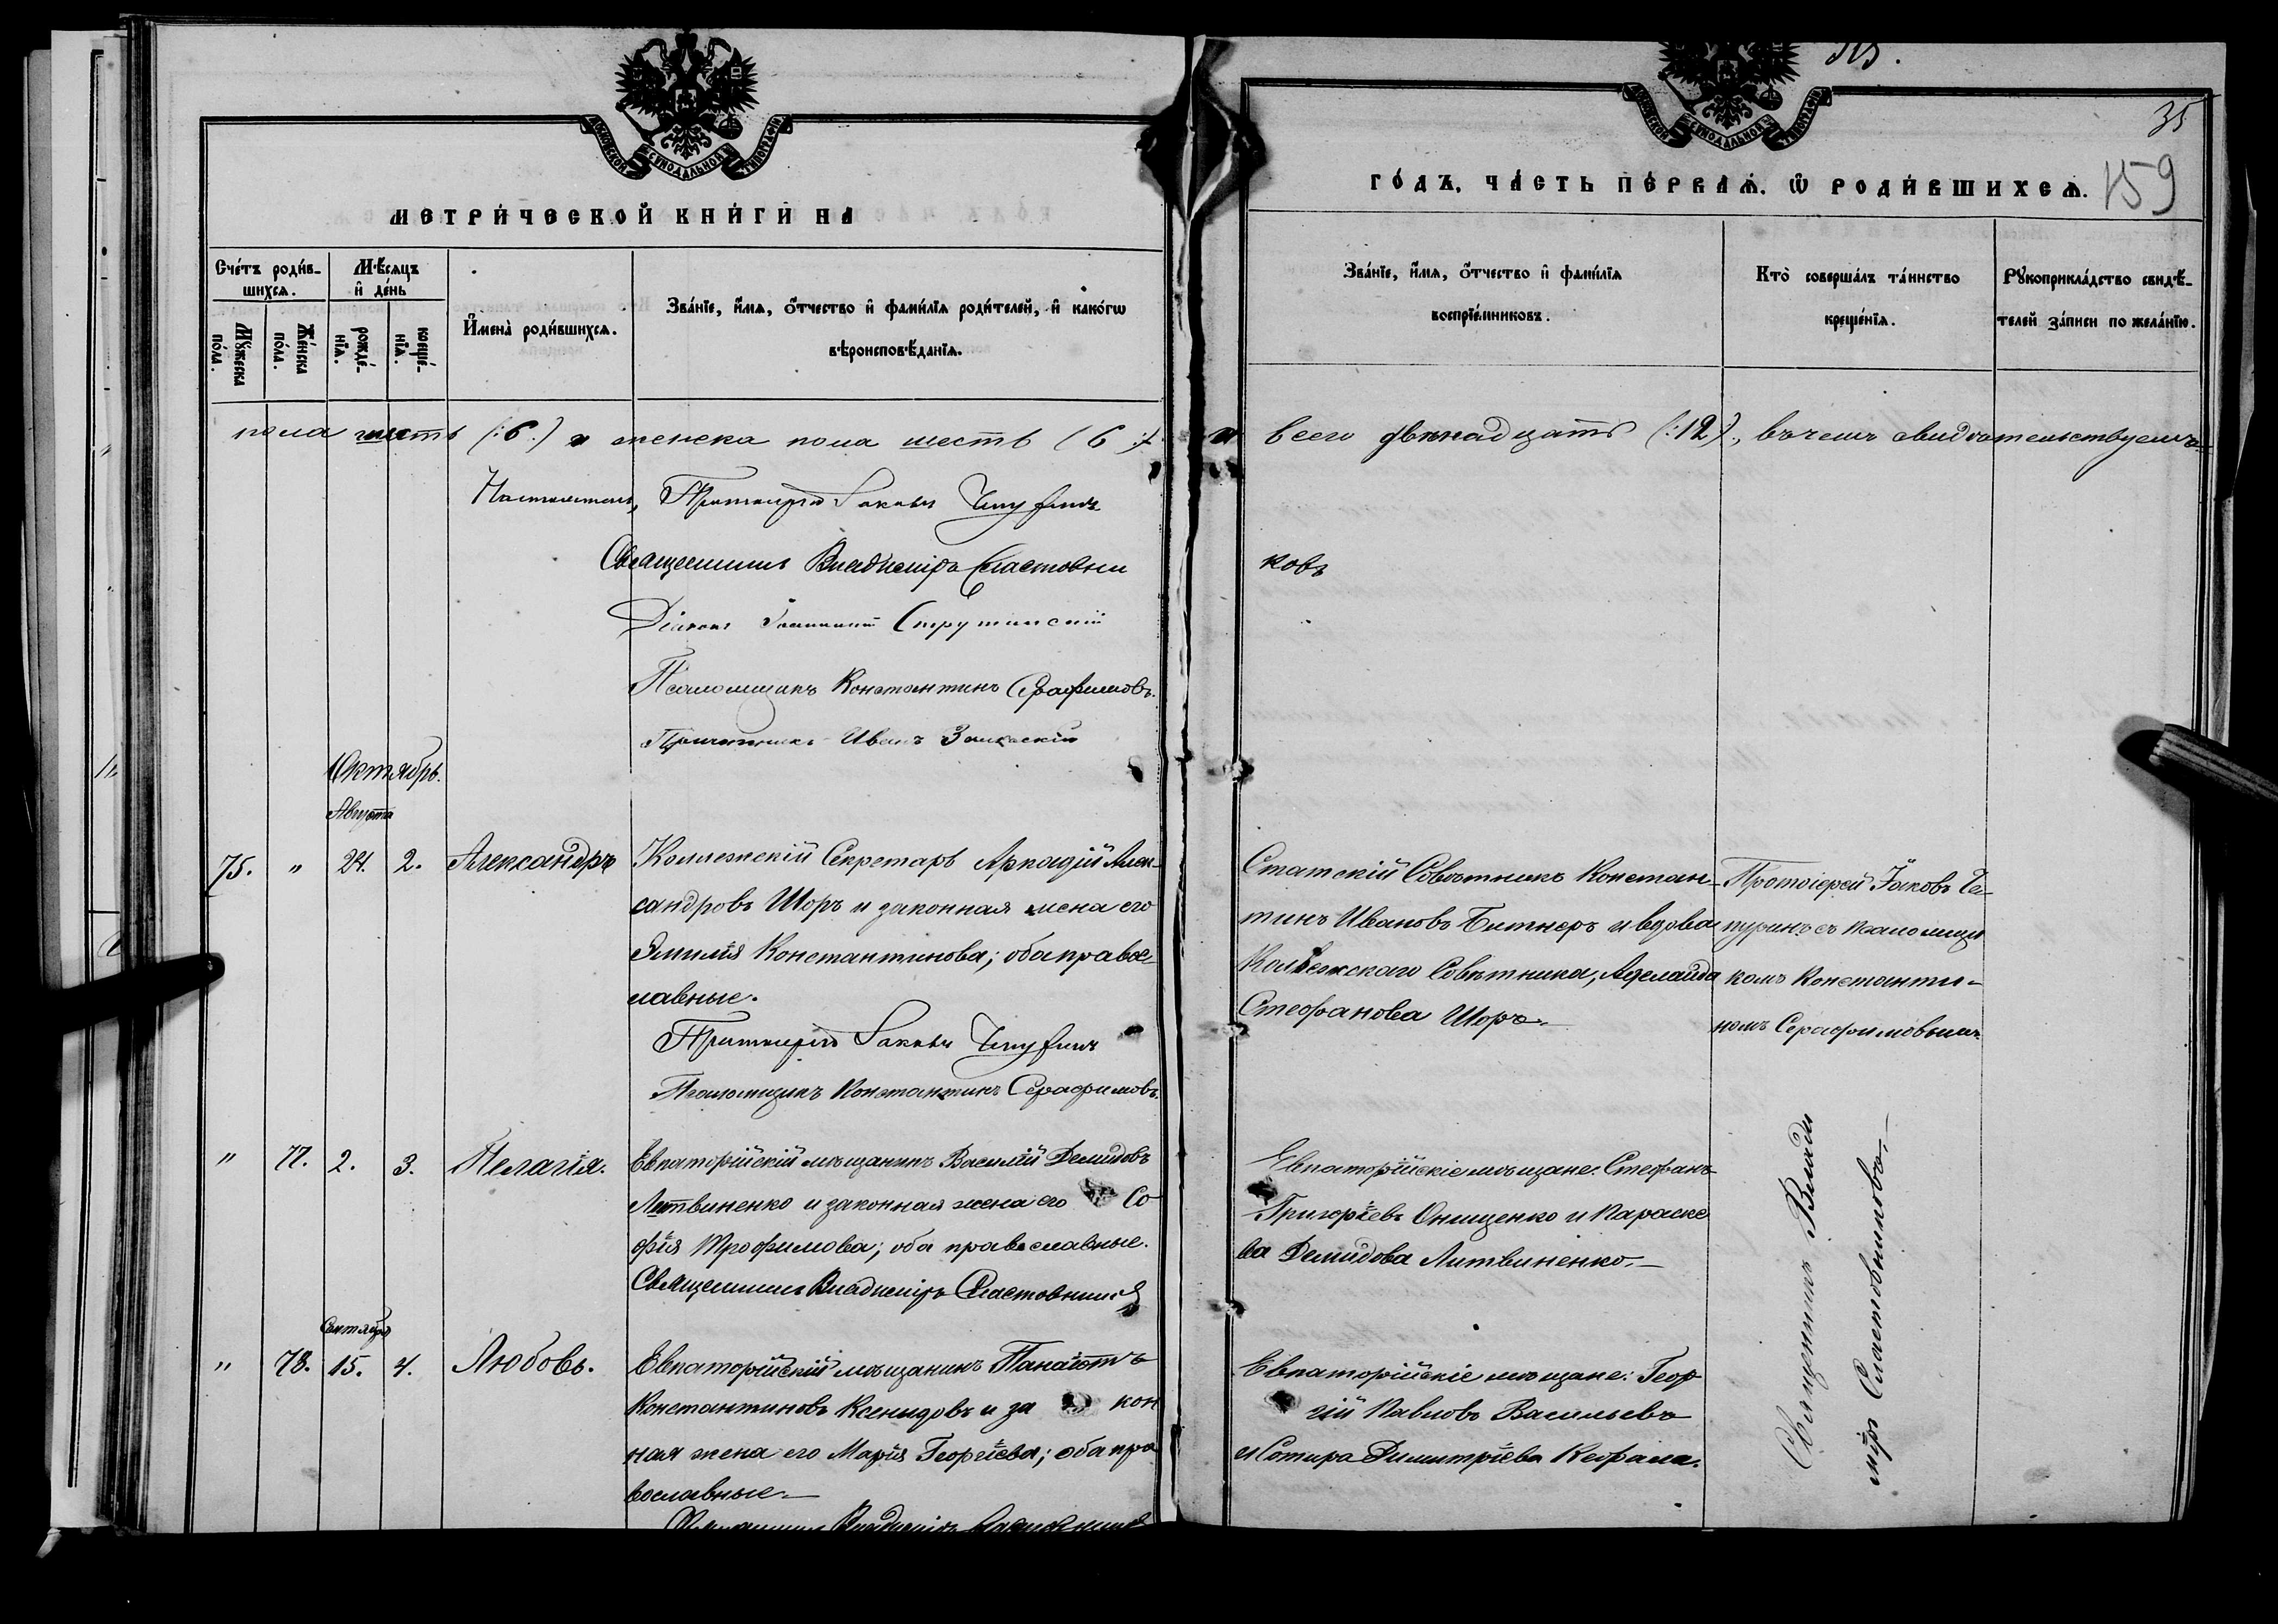 МОСКОВСКОЙ СѴНОДАЛЬНОЙ ТИПОГРАФІИ
МЕТРИ́ЧЕСКОЙ КНИ́ГИ НА
Сче́тъ роди́в-
шихся.
Мѣ́сяцъ
и҆ де́нь
Мꙋ́жеска
по́ла.
Же́нска
по́ла.
рожде́-
нїя.
креще́-
нїя.
И҆мена̀ роди́вшихся.
Зва́нїе, и҆́мя, ѻ҆́тчество и҆ фами́лїя роди́телей, и҆ како́гѡ
вѣроисповѣ́данїя.
пола шесть (:6.) и женска пола шесть (6:)
Настоятель, Протоіерей Іаковъ Чепуринъ
Священникъ Владиміръ Сластовни
Діаконъ Іоанникій Струтинскій
Псаломщикъ Константинъ Серафимовъ.
Причетникъ Иванъ
Октябрь.
Августа
75. " 24. 2. Александръ
Коллежскій Секретарь Аркадій Алек-
сандровъ Шоръ и законная жена его
Эмилія Константинова; оба правос-
лавные.
Протоіерей Іаковъ Чепуринъ
Псаломщикъ Константинъ Серафимовъ.
" 77. 2. 3. Пелагія.
Евпаторійскій мѣщанинъ Василій Демидовъ
Литвиненко и законная жена его Со
фія Трофимова; оба православные.
Священникъ Владиміръ Сластовников
Сентября
" 78. 15. 4. Любовь.
Евпаторійскій мѣщанинъ Панаіотъ
Константиновъ Ксенидовъ и за кон
ная жена его Марія Георгіева; оба пра
вославные.—
Священникъ Владиміръ
35
159
МОСКОВСКОЙ СѴНОДАЛЬНОЙ ТИПОГРАФІИ
ГО́ДЪ. ЧА́СТЬ ПЕ́РВАЯ. Ѡ РОДИ́ВШИХСЯ.
Зва́нїе, и҆́мя, ѻ҆́тчество и҆ фами́лїя
воспрїе́мниковъ.
Кто̀ соверша́лъ та́инство
креще́нїя.
Рꙋкоприкла́дство свидѣ́-
телей за́писи по жела́нїю.
а всего двѣнадцать (:12)., въ чемъ свидѣтельствуемъ
ковъ
Статскій Совѣтникъ Констан-
тинъ Ивановъ Битнеръ и вдова
Коллежскаго Совѣтника, Аделаида
Стефанова Шоръ.
Протоіерей Іаковъ Че-
пуринъ съ псаломщи
комъ Константи-
номъ Серафимовымъ.
Евпаторійскіе мѣщане: Стефанъ
Григоріевъ Онищенко и Параске
ва Демидова Литвиненко.—
Евпаторійскіе мѣщане: Геор
гій Павловъ Васильевъ
и Сотира Димитріева Кефала.
Священникъ Влади
міръ Сластовниковъ.—